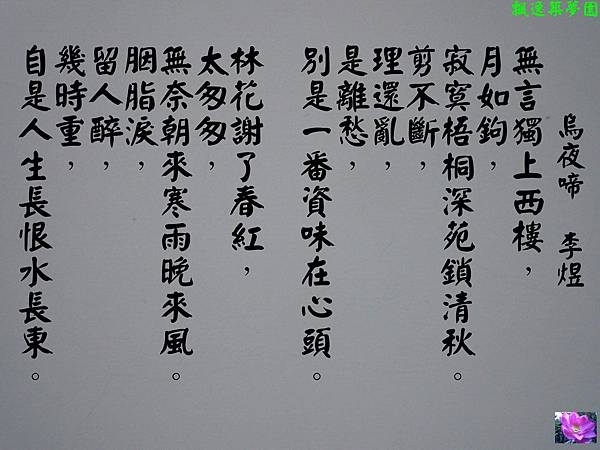 烏夜啼 李煜
無言獨上西樓,
月如鉤,
寂寞梧桐深苑鎖清秋。
剪不斷,
理還亂,
是離愁,
別是一番資味在心頭。
林花謝了春紅,
太匆匆,
無奈朝來寒雨晚來風。
胭脂淚,
留人醉,
幾時重,
自是人生長恨水長東。
築夢園